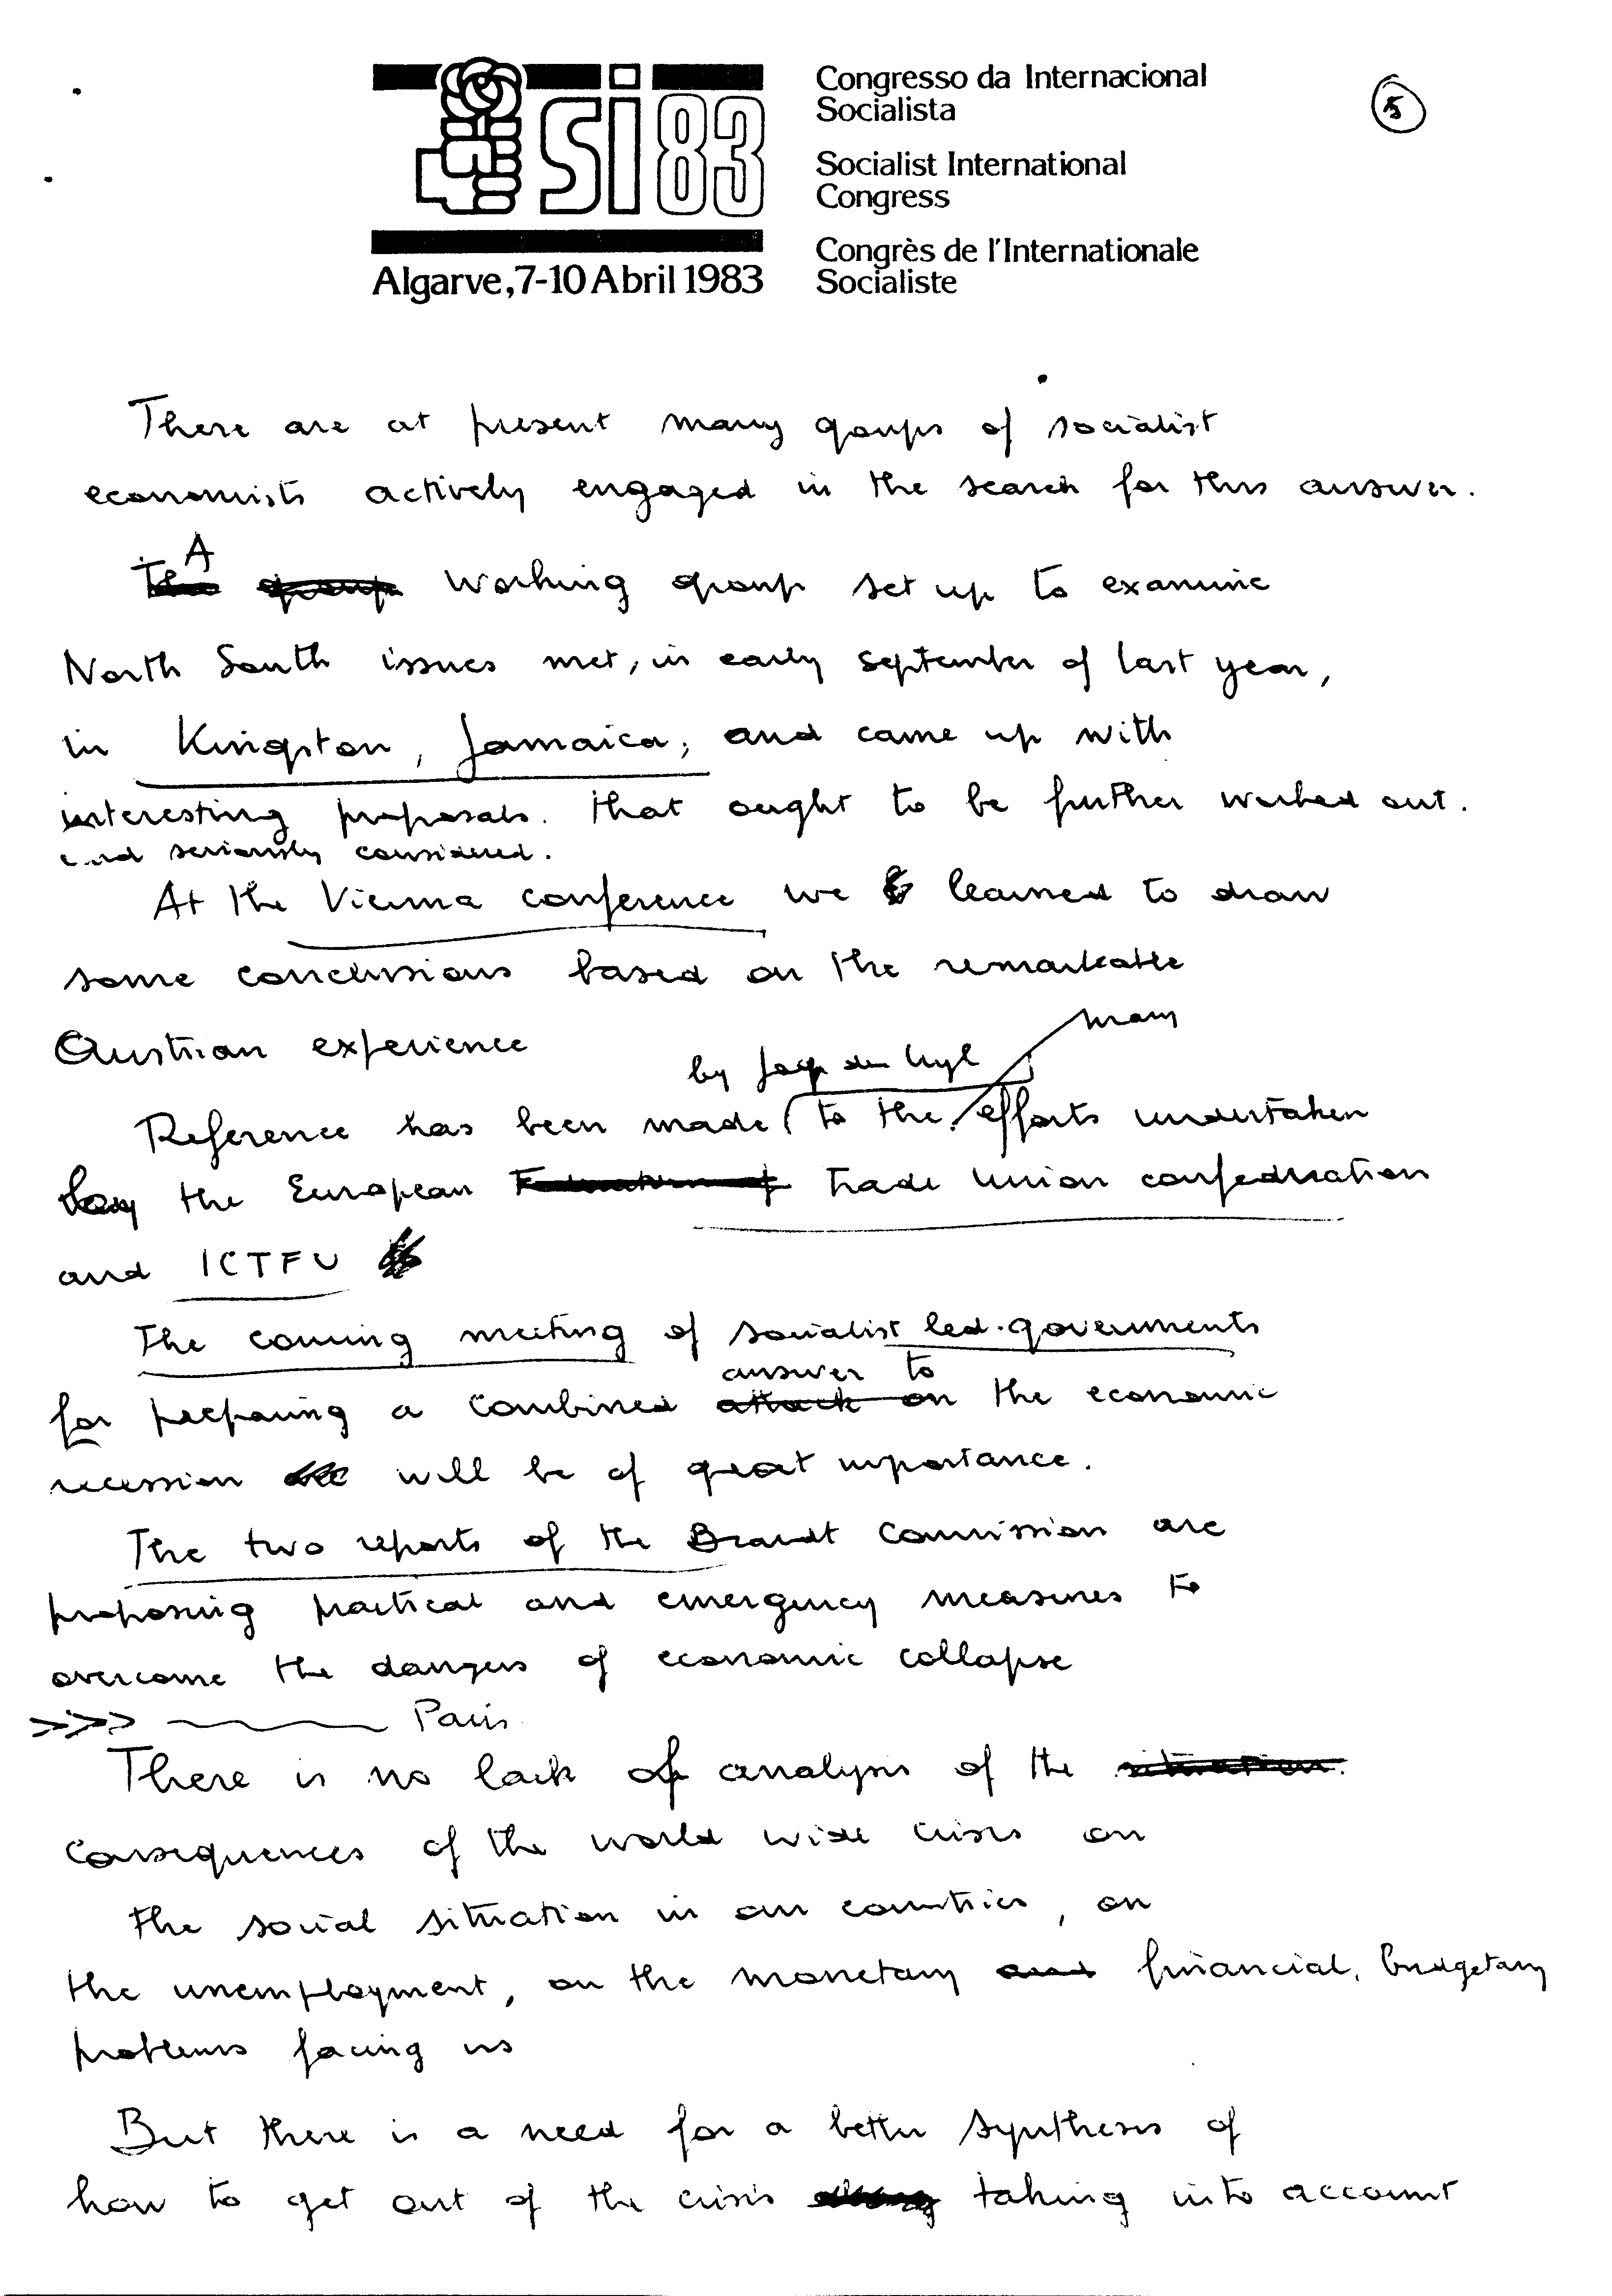 SI 83
Algarve, 7-10 Abril 1983
Congresso da Internacional
Socialista
Socialist International
Congress
Congrès de l'Internationale
Socialiste
5
There are at present many goups of socialist
economists actively engaged in the search for this answer.
A
The group working group set up to examine
North South issues met, in early september of last year,
in Kingston, Jamaica, and came up with
interesting proposals. that ought to be further worked out.
and seriously considered.
At the Vienna conference we learned to draw
some conclusions based on the remarkable
Austrian experience
many
by Joop den Uyl
Reference has been made to the efforts undertaken
by the European Federation of trade union confederation
and ICTFU
The coming meeting of socialist led-governments
answer to
for preparing a combined attack on the economic
recession will be of great importance.
The two reports of the Brandt Commission are
proposing practical and emergency measures to
overcome the dangers of economic collapse
>>> Paris
There is no lack of analysis of the situation.
consequences of the world wide crisis on
the social situation in our countries, on
the unemployment, on the monetary and financial, budgetary
problems facing us
But there is a need for a better synthesis of
how to get out of the crisis taking into account